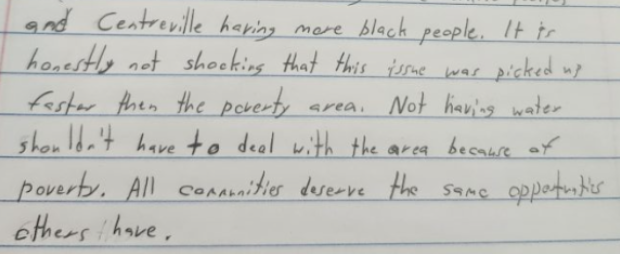 and Centreville having more black people. It is
honestly not shocking that this issue was picked up
faster then the poverty area. Not having water
shouldn't have to deal with the area because of
poverty. All communities deserve the same oppotunities
others have.